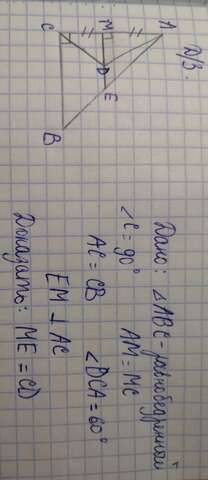 Д/З.
C
M
A
D
E
B
Дано: △ABC - равнобедренный
∠C = 90° AM = MC
AC = CB ∠DCA = 60°
EM ⊥ AC
Доказать: ME = CD